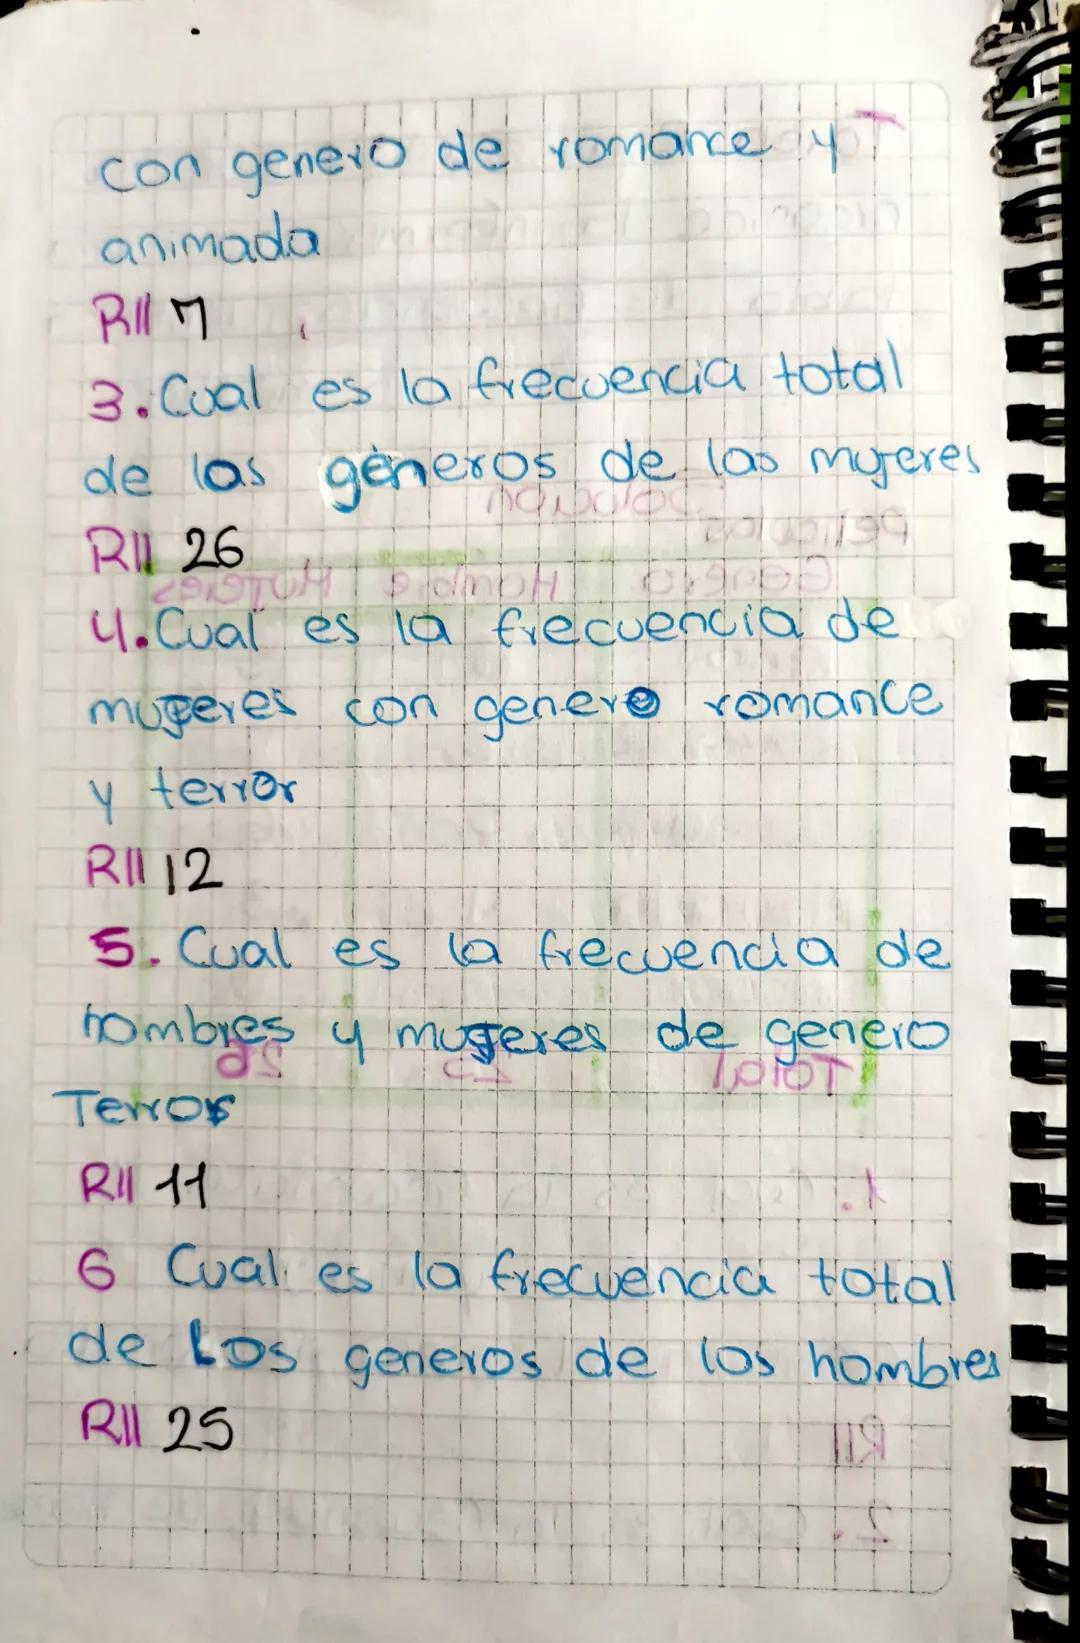 con genero de romance y
animada
R// 7
3. Cual es la frecuencia total
de los géneros de las mujeres
R// 26
4. Cual es la frecuencia de
mujeres con genero romance
y terror
R// 12
5. Cual es la frecuencia de
hombres y mujeres de genero
Terror
R// 11
6 Cual es la frecuencia total
de Los generos de los hombres
R// 25